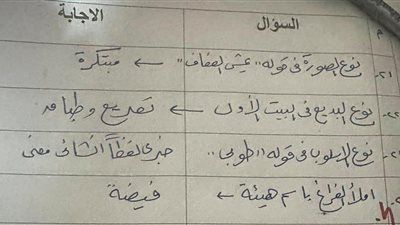 م السؤال الاجابة
٢١- نوع الصورة فى قوله "عش العفاف" ← مبتكرة
٢٢- نوع البديع فى البيت الأول ← تصريع وطباق
نوع الاسلوب فى قوله "طوبى" خبرى لفظاً انشائى معنى
املأ الفراغ باسم هيئة ← فيضة